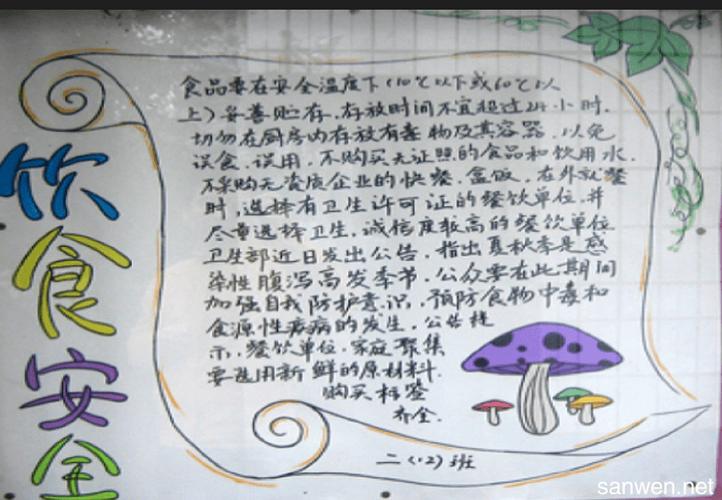 饮食安全
食品要在安全温度下(10℃以下或60℃以
上)妥善贮存.存放时间不宜超过24小时.
切勿在厨房内存放有毒物及其容器.以免
误食.误用.不购买无证照的食品和饮用水.
不采购无资质企业的快餐.盒饭.在外就餐
时,选择有卫生许可证的餐饮单位.并
尽量选择卫生.诚信度较高的餐饮单位
卫生部近日发出公告.指出夏秋季是感
染性腹泻高发季节.公众要在此期间
加强自我防护意识.预防食物中毒和
食源性疾病的发生.公告提
示.餐饮单位.家庭聚集
要选用新鲜的原材料.
购买标签
齐全.
二(12)班
sanwen.net